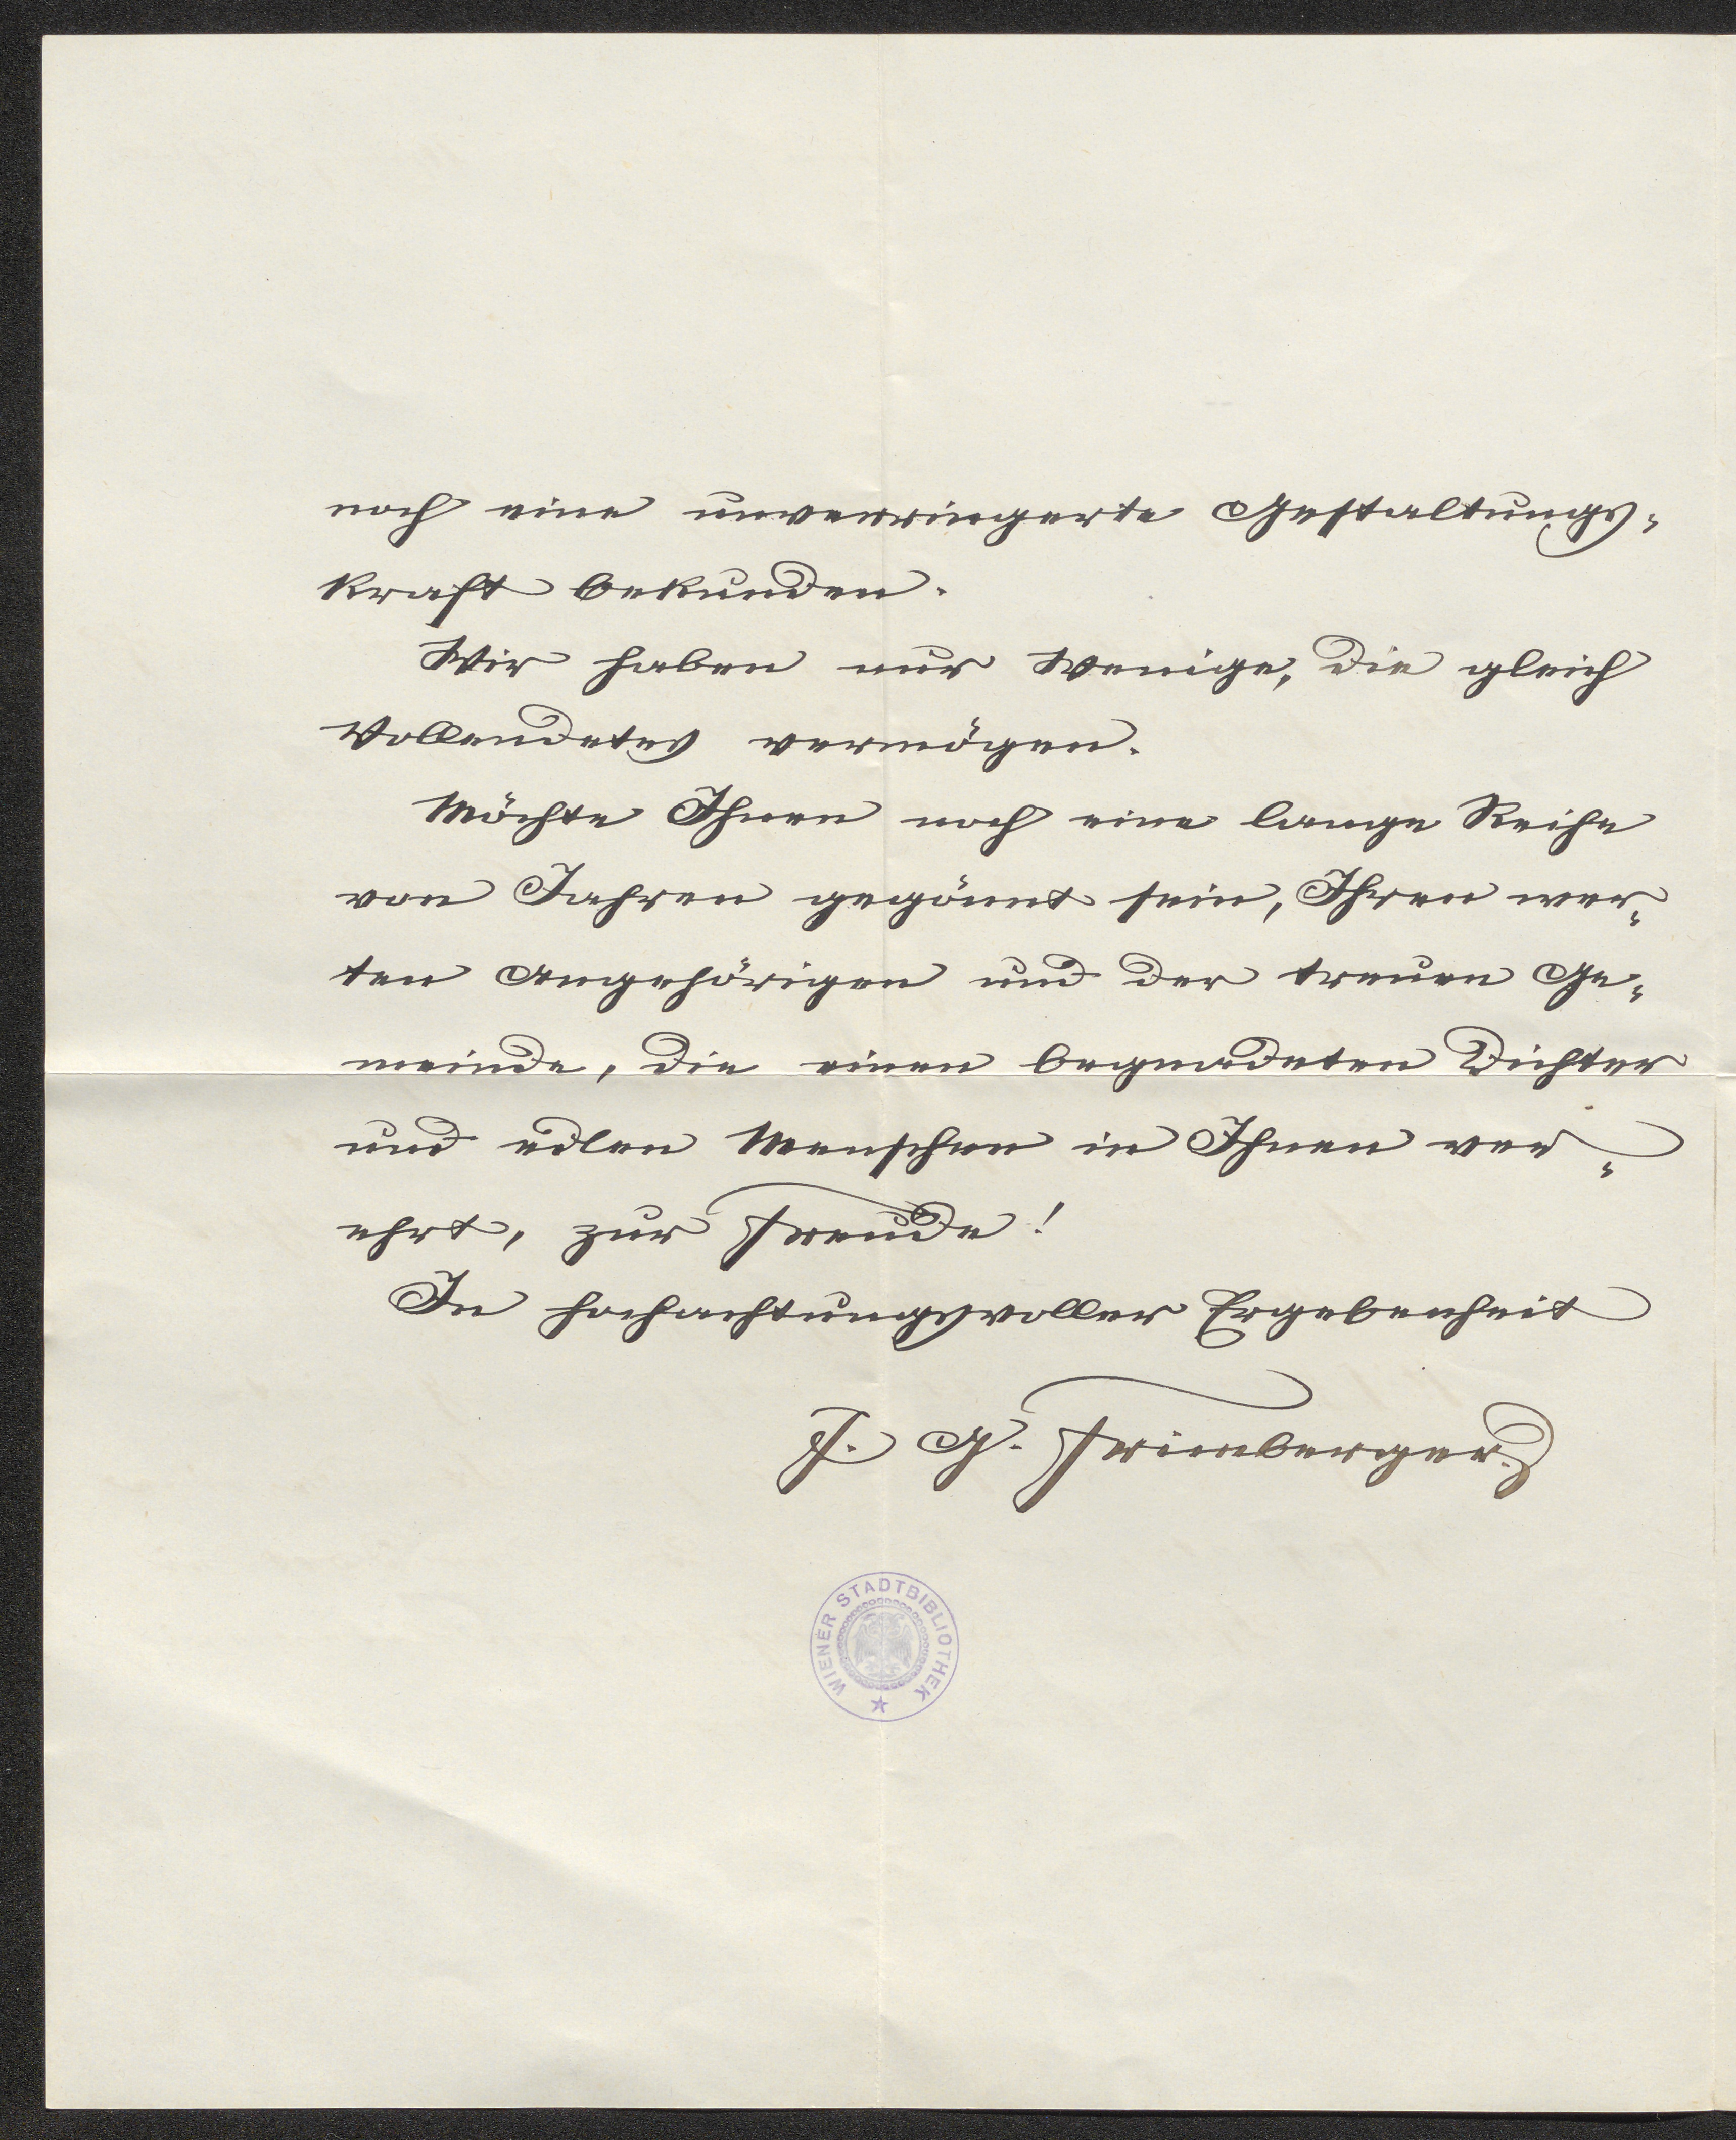 noch eine unverringerte Gestaltungs-
kraft bekunden.
Wir haben nur Wenige, die gleich
Vollendetes vermögen.
Möchte Ihnen noch eine lange Reihe
von Jahren gegönnt sein, Ihren wer-
ten Angehörigen und der treuen Ge-
meinde, die einen begnadeten Dichter
und edlen Menschen in Ihnen ver-
ehrt, zur Freude!
In hochachtungsvoller Ergebenheit
J. G. Frimberger
WIENER STADTBIBLIOTHEK